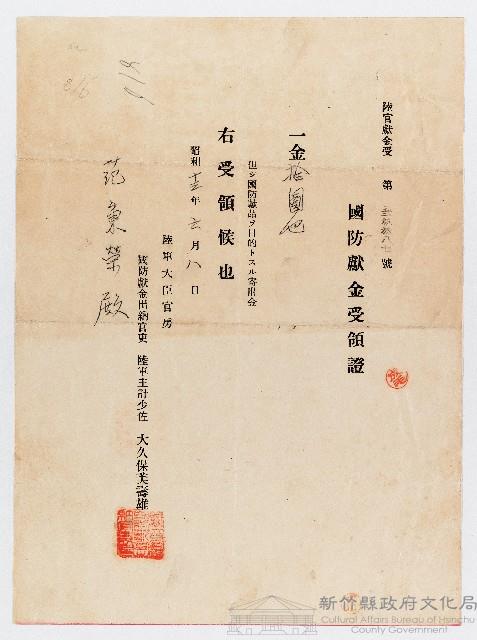 陸官獻金受 第 號
國防獻金受領證
一金拾圓也
但シ國防獻品ヲ目的トスル寄附金
右受領候也
昭和十三年六月八日
陸軍大臣官房
國防獻金出納官吏 陸軍主計少佐 大久保美壽雄
范朝榮殿
新竹縣政府文化局
Cultural Affairs Bureau of Hsinchu
County Government